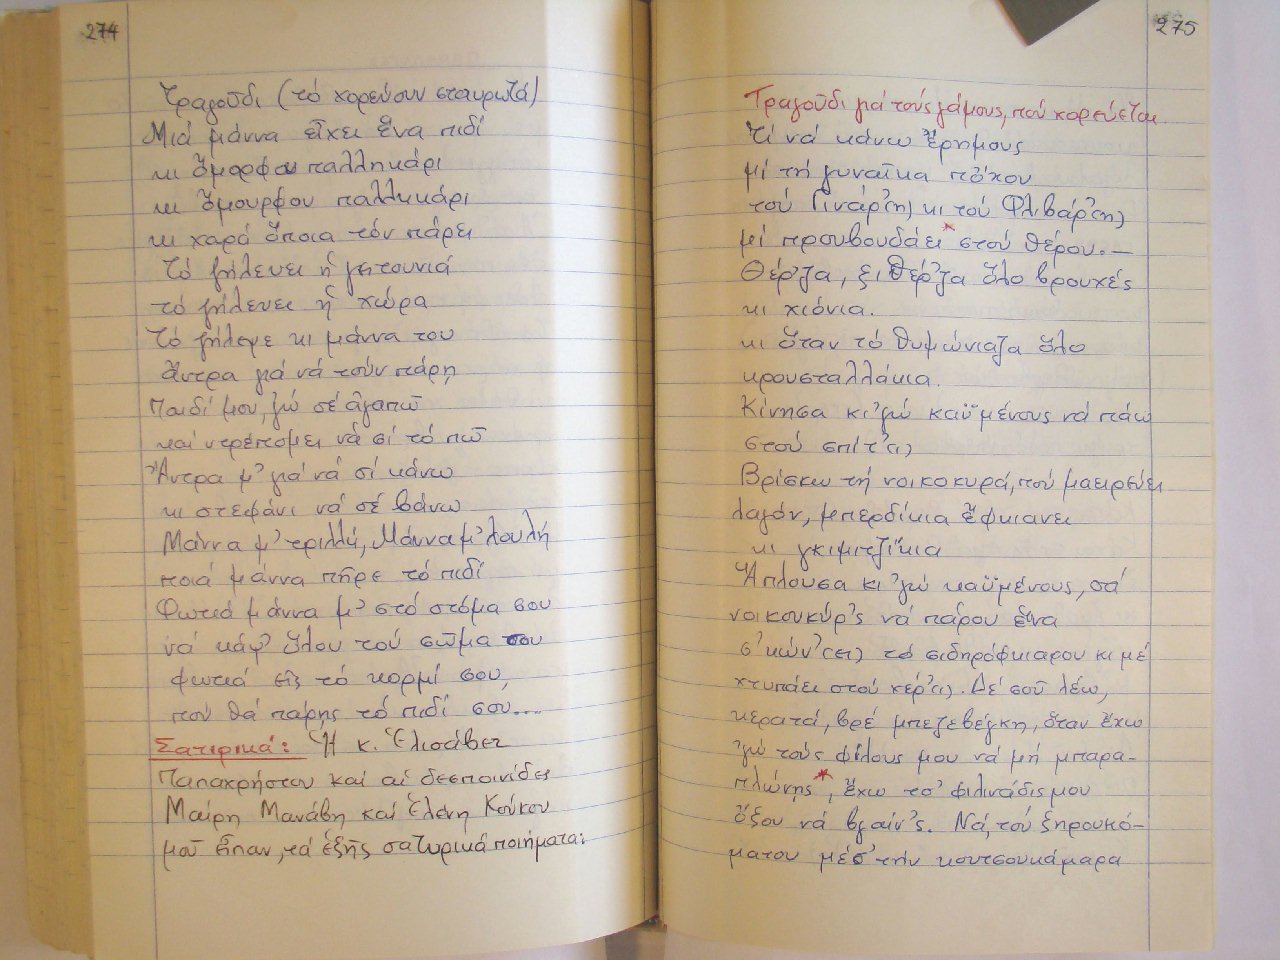 274
Τραγοῦδι (τό χορεύουν σταυρωτά)
Μιά μάννα εἶχει ἕνα πιδί
κι ὄμορφου παλληκάρι
κι ὄμουρφου παλληκάρι
κι χαρά ὅποια τόν πάρει
τό ζήλευει ἡ γειτουνιά
τό ζήλευει ἡ χώρα
τό ζήλεψε κι μάννα του
ἄντρα γιά νά τούν πάρη
Παιδί μου, ᾽γώ σέ ἀγαπῶ
καί ντρέπομει νά σί τό πῶ
Ἄντρα μ᾽ γιά νά σί κάνω
κι στεφάνι νά σέ βάνω
Μάννα μ᾽ τριλλή, Μάννα μ᾽ λουλή
ποιά μάννα πῆρε τό πιδί
Φωτιά μάννα μ᾽ στό στόμα σου
νά κάψ᾽ ὅλου τού σῶμα σου
φωτιά εἰς τό κορμί σου,
πού θά πάρης τό πιδί σου....
Σατιρικά: Ἡ κ. Ἐλισάβετ
Παπαχρήστου καί αἱ δεσποινίδες
Μαίρη Μανάβη καί Ἑλένη Κούκου
μοῦ εἶπαν, τά ἑξῆς σατυρικά ποιήματα:
275
Τραγοῦδι γιά τούς γάμους, πού χορεύεται
Τί νά κάνω ἔρημους
μί τή γυναῖκα πὄχου
τού Γινάρ᾽(η) κι τού Φλιβάρ᾽(η)
μί προυβουδάει * στού θέρου.—
Θέρ᾽ζα, ξι θέρ᾽ζα ὅλο βρουχές
κι χιόνια.
κι ὅταν τό θυμώνιαζα ὅλο
κρουσταλλάκια.
Κίνησα κι ᾽γώ καϋμένους νά πάω
στού σπίτ᾽(ι)
Βρίσκω τή νοικοκυρά, πού μαειρεύει
λαγόν, μπερδίκια ἔφκιανει
κι γκιμιτζίκια
Ἅπλουσα κι ᾽γώ καϋμένους, σά
νοικουκύρ᾽ς νά πάρου ἕνα
σ᾽κών᾽(ει) τό σιδηρόφκιαρου κι μέ
χτυπάει στού χέρ᾽(ι). Δέ σοῦ λέω,
κερατά, βρέ μπεζεβέγκη, ὅταν ἔχω
᾽γώ τούς φίλους μου νά μή μπαρα-
πλώνης *, ἔχω τσ᾽ φιλινάδις μου
ὄξου νά βγαίν᾽ς. Νά, τού ξηρουκό-
ματου μέσ᾽ τήν κουτσουκάμαρα